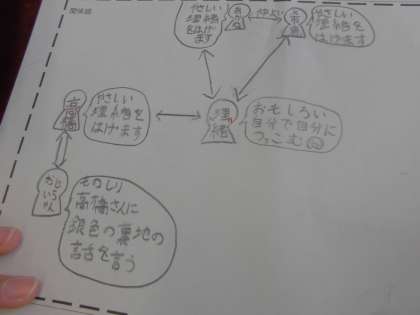 関係図
理緒
をはげ
ます
やさしい
理緒を
はげます
高橋
やさしい
理緒を
はげます
理緒
おもしろい
自分で自分に
つっこむ
おじ
いちゃん
ものしり
高橋さんに
銀色の裏地の
話を言う